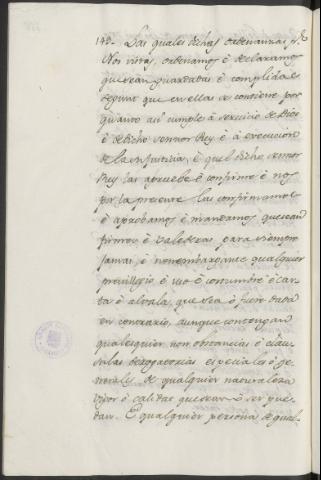 149. Las quales dichas ordenanzas p.r
Nos vistas, ordenamos é declaramos
que sean guardadas é complidas
segunt que en ellas se contiene por
quanto así cumple á servicio de Dios
é de dicho sennor Rey é á execucion
de la su justicia, é quel dicho sennor
Rey las apruebe é confirme é nos
por la presente las confirmamos
é aprobamos é mandamos que sean
firmes, é valederas para siempre
jamas, é non embargante qualquier
previllegio, é uso é costumbre é car-
ta é alvala, que sea ó fuere dada
en contrario, aunque contengan
qualesquier non obstancias é clau-
sulas derogatorias especiales ó ge-
nerales de qualquier naturaleza
vigor é calidat que sean ó ser pue-
dan. E qualquier persona de qual-